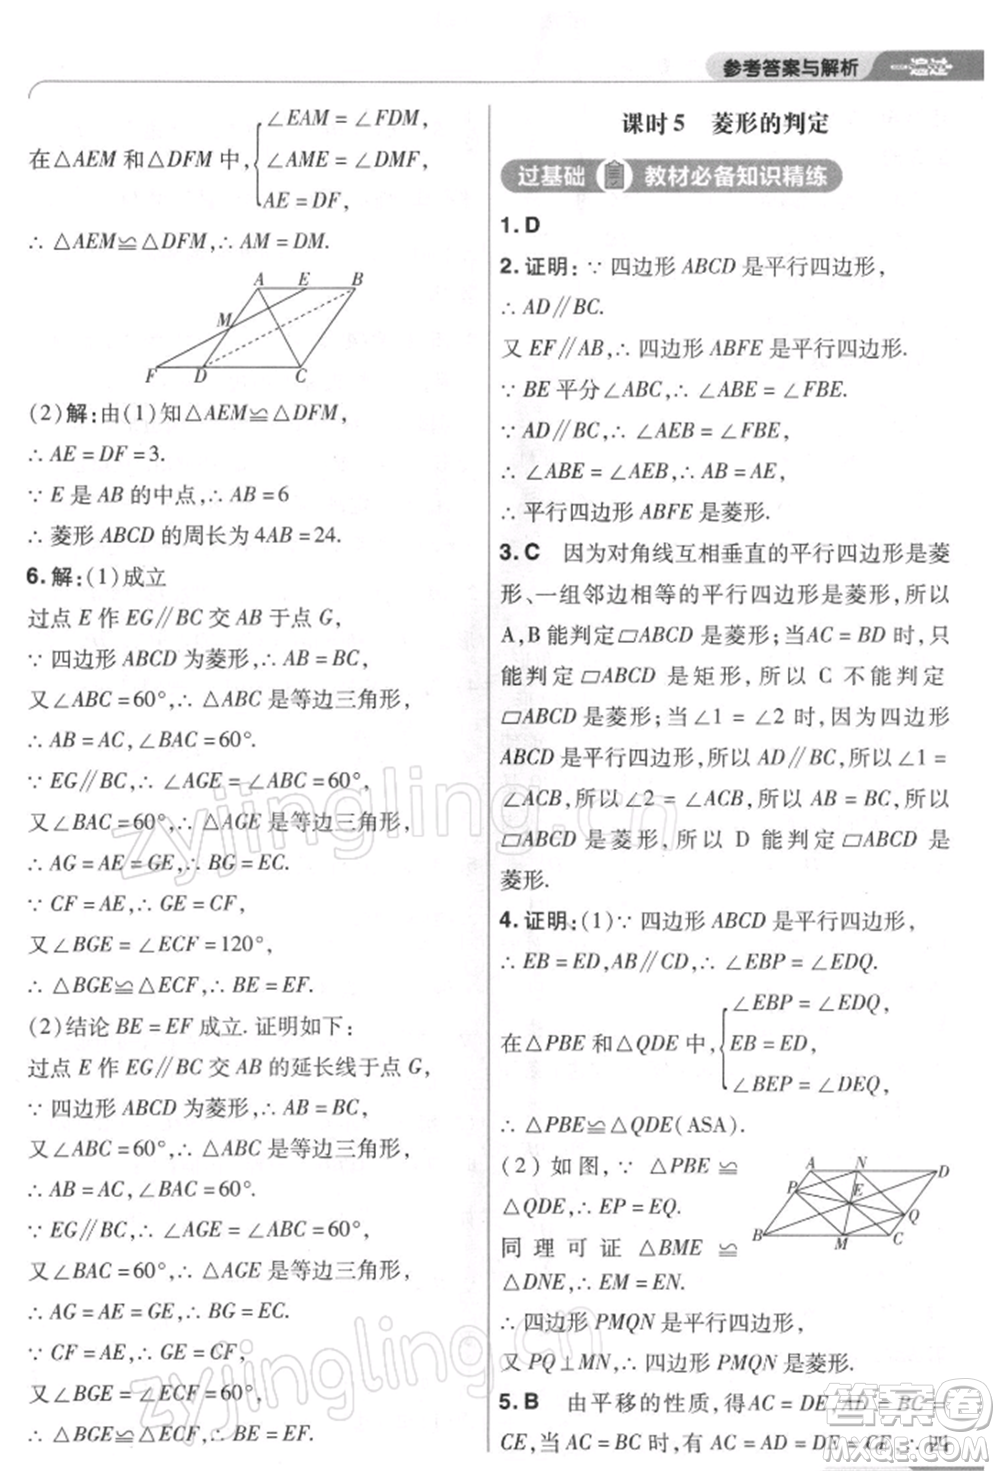 参考答案与解析 一遍过
∠EAM = ∠FDM,
在△AEM 和△DFM 中, ∠AME = ∠DMF,
AE = DF,
∴ △AEM≌△DFM, ∴ AM = DM.
A E B
M
F D C
(2)解:由(1)知△AEM≌△DFM,
∴ AE = DF = 3.
∵ E 是 AB 的中点, ∴ AB = 6
∴ 菱形 ABCD 的周长为 4AB = 24.
6.解:(1)成立
过点 E 作 EG∥BC 交 AB 于点 G,
∵ 四边形 ABCD 为菱形, ∴ AB = BC,
又∠ABC = 60°, ∴ △ABC 是等边三角形,
∴ AB = AC, ∠BAC = 60°.
∵ EG∥BC, ∴ ∠AGE = ∠ABC = 60°,
又∠BAC = 60°, ∴ △AGE 是等边三角形,
∴ AG = AE = GE, ∴ BG = EC.
∵ CF = AE, ∴ GE = CF,
又∠BGE = ∠ECF = 120°,
∴ △BGE≌△ECF, ∴ BE = EF.
(2)结论 BE = EF 成立. 证明如下:
过点 E 作 EG∥BC 交 AB 的延长线于点 G,
∵ 四边形 ABCD 为菱形, ∴ AB = BC,
又∠ABC = 60°, ∴ △ABC 是等边三角形,
∴ AB = AC, ∠BAC = 60°,
∵ EG∥BC, ∴ ∠AGE = ∠ABC = 60°,
又∠BAC = 60°, ∴ △AGE 是等边三角形,
∴ AG = AE = GE, ∴ BG = EC.
∵ CF = AE, ∴ GE = CF,
又∠BGE = ∠ECF = 60°,
∴ △BGE≌△ECF, ∴ BE = EF.
课时 5 菱形的判定
过基础 教材必备知识精练
1. D
2. 证明: ∵ 四边形 ABCD 是平行四边形,
∴ AD∥BC.
又 EF∥AB, ∴ 四边形 ABFE 是平行四边形.
∵ BE 平分∠ABC, ∴ ∠ABE = ∠FBE.
∵ AD∥BC, ∴ ∠AEB = ∠FBE,
∴ ∠ABE = ∠AEB, ∴ AB = AE,
∴ 平行四边形 ABFE 是菱形.
3. C 因为对角线互相垂直的平行四边形是菱
形、一组邻边相等的平行四边形是菱形,所以
A,B 能判定▱ABCD 是菱形;当 AC = BD 时,只
能判定▱ABCD 是矩形,所以 C 不能判定
▱ABCD 是菱形;当∠1 = ∠2 时,因为四边形
ABCD 是平行四边形,所以 AD∥BC,所以∠1 =
∠ACB,所以∠2 = ∠ACB,所以 AB = BC,所以
▱ABCD 是菱形,所以 D 能判定▱ABCD 是
菱形.
4. 证明:(1)∵ 四边形 ABCD 是平行四边形,
∴ EB = ED,AB∥CD, ∴ ∠EBP = ∠EDQ.
∠EBP = ∠EDQ,
在△PBE 和△QDE 中, EB = ED,
∠BEP = ∠DEQ,
∴ △PBE≌△QDE(ASA).
(2) 如图, ∵ △PBE ≌
△QDE, ∴ EP = EQ.
同理可证 △BME ≌
△DNE, ∴ EM = EN.
A N D
P E
Q
B M C
∴ 四边形 PMQN 是平行四边形,
又 PQ⊥MN, ∴ 四边形 PMQN 是菱形.
5. B 由平移的性质,得 AC = DE,AD = BC =
CE,当 AC = BC 时,有 AC = AD = DE = CE, ∴ 四
zyjingling.cn
zyjingling.cn
答案圈
MXQE.COM